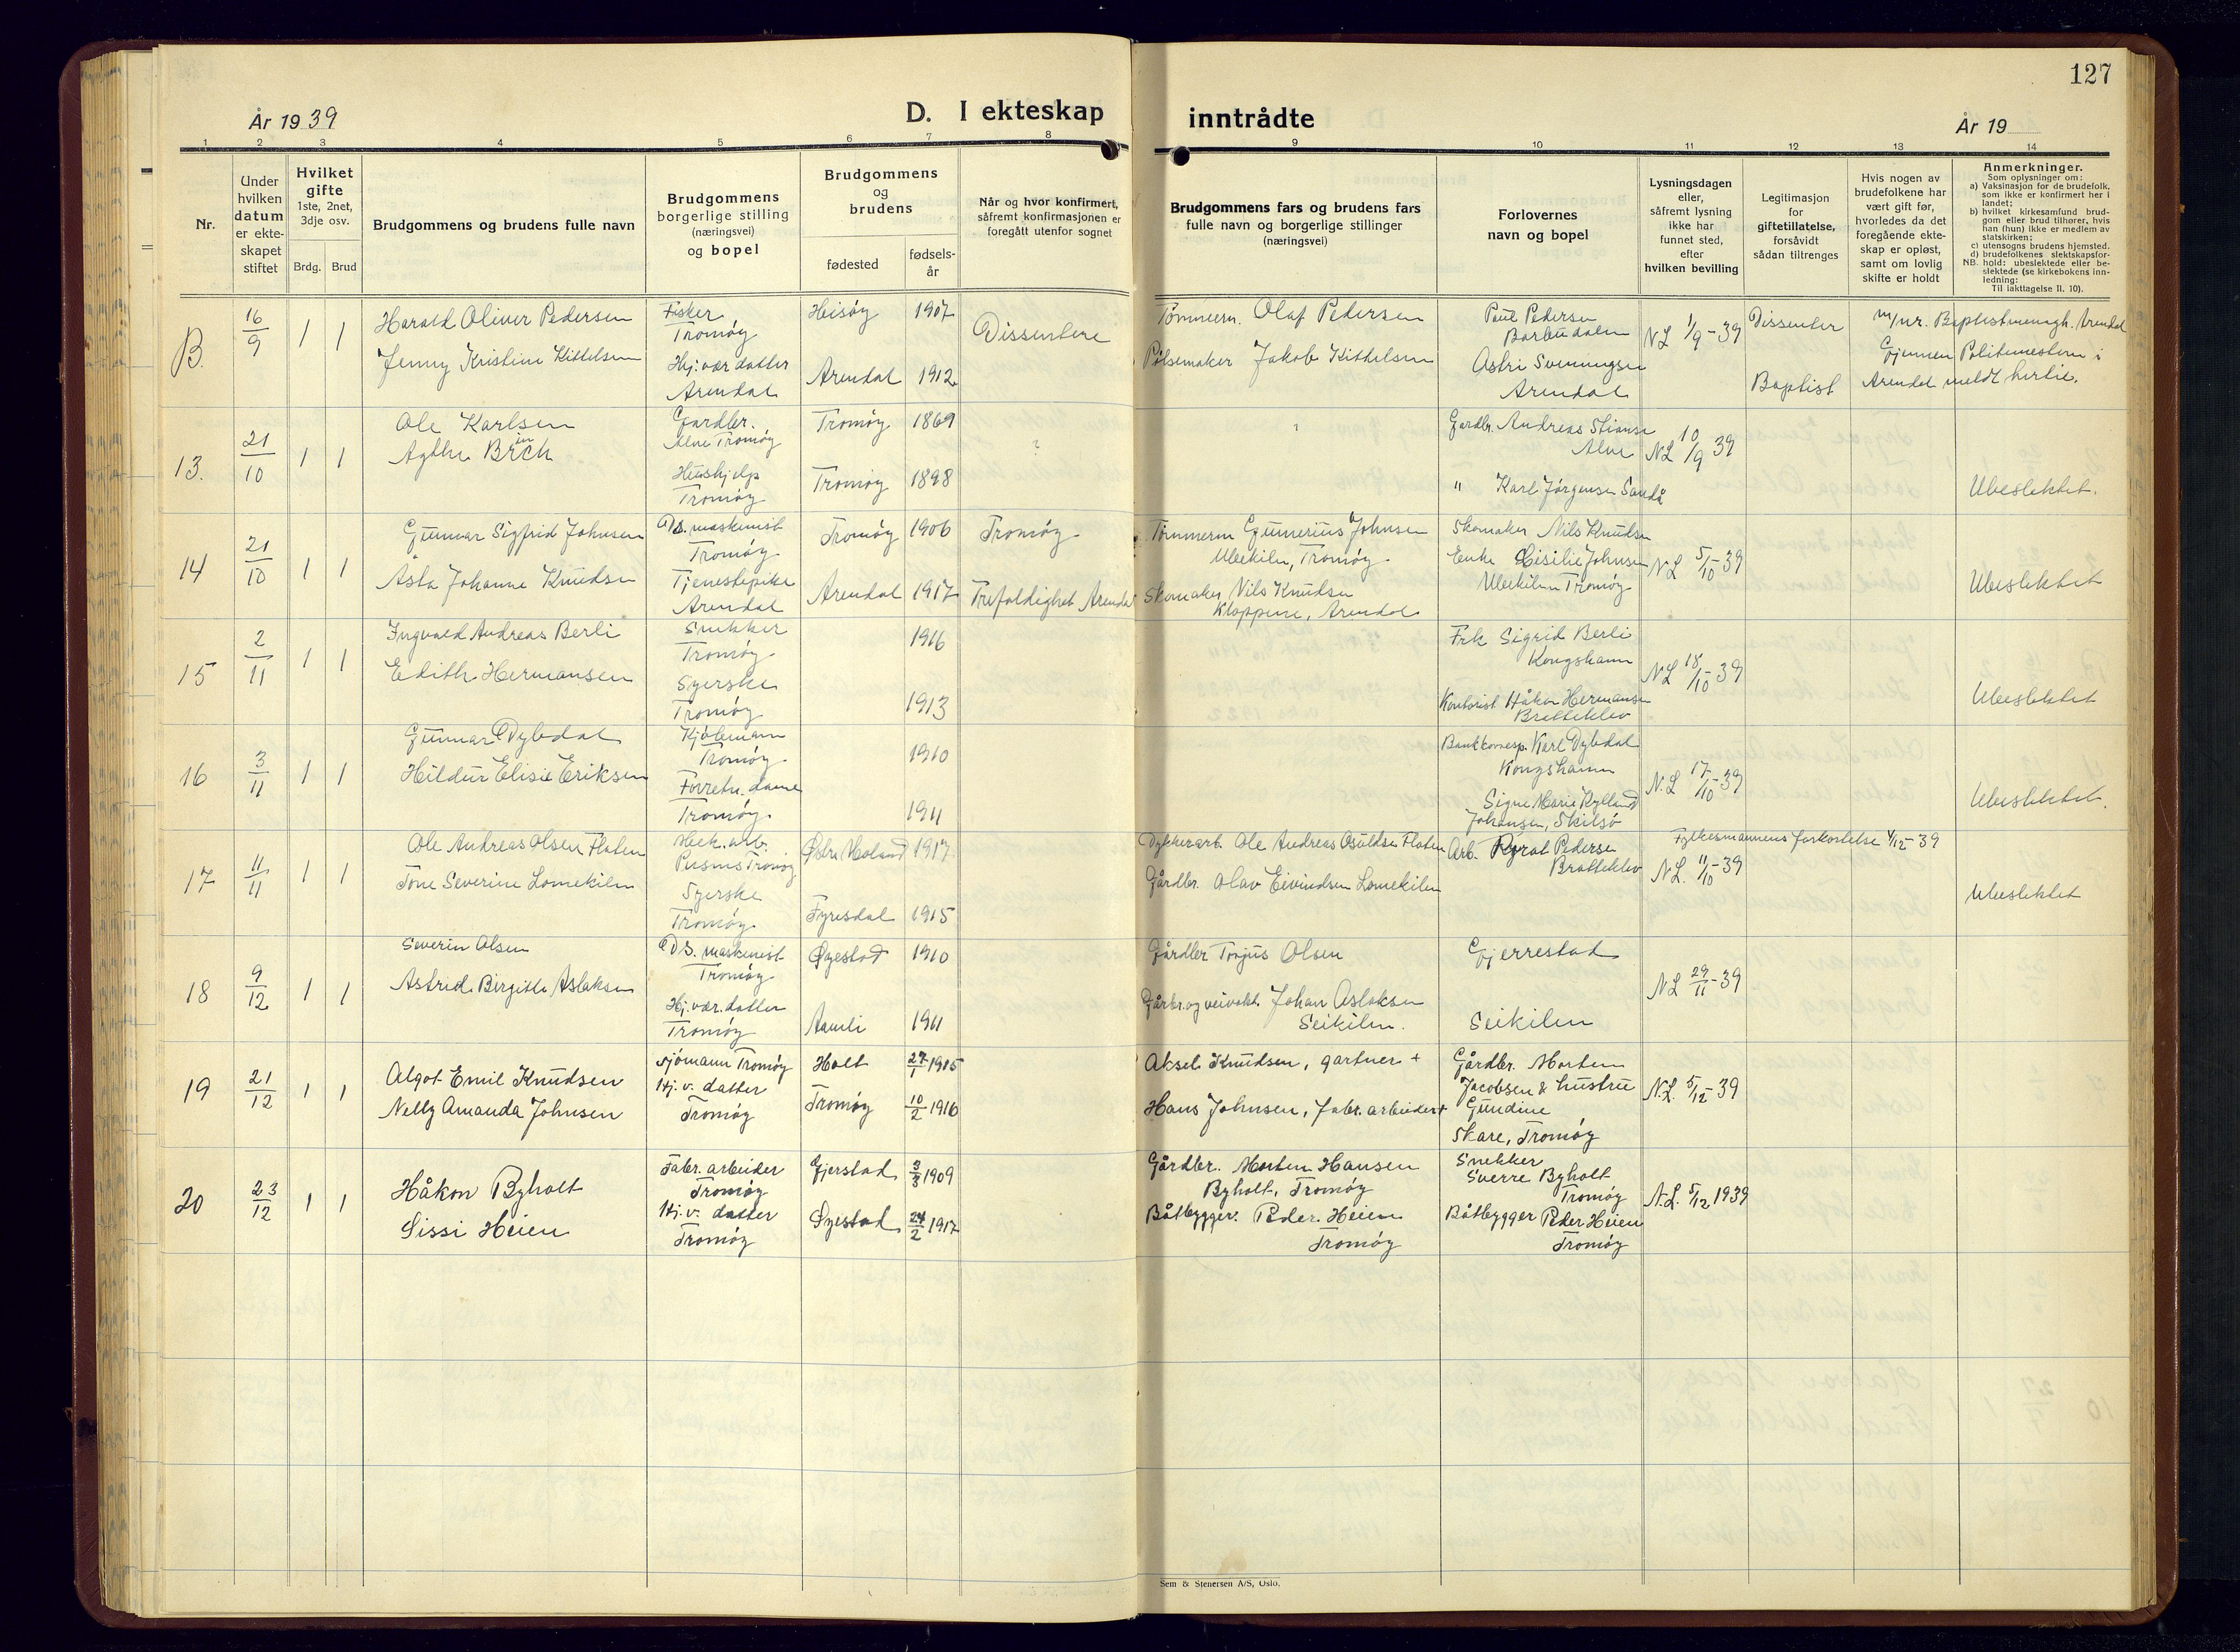 127
År 1939
D. I ekteskap inntrådte
År 19
1 2 3 4 5 6 7 8 9 10 11 12 13 14
Nr.
Under hvilken datum er ekteskapet stiftet
Hvilket gifte 1ste, 2net, 3dje osv.
Brdg. Brud
Brudgommens og brudens fulle navn
Brudgommens borgerlige stilling (næringsvei) og bopel
Brudgommens og brudens
fødested
fødselsår
Når og hvor konfirmert, såfremt konfirmasjonen er foregått utenfor sognet
Brudgommens fars og brudens fars fulle navn og borgerlige stillinger (næringsvei)
Forlovernes navn og bopel
Lysningsdagen eller, såfremt lysning ikke har funnet sted, efter hvilken bevilling
Legitimasjon for giftetillatelse, forsåvidt sådan tiltrenges
Hvis nogen av brudefolkene har vært gift før, hvorledes da det foregående ekteskap er opløst, samt om lovlig skifte er holdt
Anmerkninger.
Som oplysninger om:
a) Vaksinasjon for de brudefolk, som ikke er konfirmert her i landet;
b) hvilket kirkesamfund brudgom eller brud tilhører, hvis han (hun) ikke er medlem av statskirken;
c) utensogns brudens hjemsted.
d) brudefolkenes slektskapsforhold: ubeslektede eller beslektede (se kirkebokens innledning:
NB. Til iakttagelse II. 10).
B. 16/9 1 1 Harald Oliver Pedersen Fisker Tromøy Heisøy 1907 Dissentere Tømmerm. Olaf Pedersen Paul Pedersen Barbudalen N.L 1/9-39 Dissenter
Jenny Kristine Kittelsen Hj.vær datter Arendal Arendal 1912 Pølsemaker Jakob Kittelsen Astri Svenningsen Arendal Baptist
Baptistmenigh. Arendal
Gjennem Politimesteren i
Arendal meldt hertil.
13. 21/10 1 1 Ole Karlsen Gardbr. Alve Tromøy Tromøy 1869 ? ? Gardbr. Andreas Stiansen Alve N.L 10/9 39
Agthe Birch Hushjelp Tromøy Tromøy 1898 " Karl Jørgensen Sandå Ubeslektet.
14 21/10 1 1 Gunnar Sigfrid Johnsen Ds. maskinist Tromøy Tromøy 1906 Tromøy Tømmerm Gunerius Johnsen Ubekilen, Tromøy Skomaker Nils Knudsen
Asta Johanne Knudsen Tjenestepike Arendal Arendal 1917 Trefoldighet Arendal Skomaker Nils Knudsen Kloppene, Arendal Enke Cisilie Johnsen Ubekilen Tromøy N.L 5/10-39 Ubeslektet
15 2/11 1 1 Ingvald Andreas Berli Snekker Tromøy 1916 Frk Sigrid Berli Kongshamn N.L 18/10-39
Edith Hermansen Syerske Tromøy 1913 Kontorist Håkon Hermansen Bratteklev Ubeslektet
16 3/11 1 1 Gunnar Dybdal Kjøbmann Tromøy 1910 Bankkorresp. Karl Dybdal Kongshamn N.L 17/10-39
Hildur Elisie Eriksen Forretn.dame Tromøy 1911 Signe Marie Kylland Johansen, Skilsø Ubeslektet.
17 11/11 1 1 Ole Andreas Olsen Flaten Mek.arb. Pusnes Tromøy Østre Moland 1917 Dykkerarb. Ole Andreas Osuldsen Flaten Arb. Pedersen Bratteklev N.L. 11/10-39 Fylkesmannens forkortelse 4/12-39
Tone Severine Lomekilen Syerske Tromøy Fyresdal 1915 Gårdbr. Olav Eivindsen Lomekilen Ubeslektet
18 9/12 1 1 Severin Olsen Ds. maskinist Tromøy Øyestad 1910 Gårdbr Torjus Olsen Gjerrestad N.L 29/11-39
Astrid Birgitte Aslaksen Hj.vær.datter Tromøy Aamli 1911 Gårbr.og veivokt. Johan Aslaksen Seikilen. Seikilen
19 21/12 1 1 Algot Emil Knudsen sjømann Tromøy Holt 27/1 1915 Aksel Knudsen, gartner + Gårdbr. Morten Jacobsen & hustru Gundine Skare, Tromøy N.L. 5/12-39
Nelly Amanda Johnsen Hj.v. datter Tromøy Tromøy 10/2 1916 Hans Johnsen, fabr.arbeider+
20 23/12 1 1 Håkon Byholt Fabr.arbeider Tromøy Gjerstad 3/3 1909 Gårdbr. Morten Hansen Byholt, Tromøy Snekker Sverre Byholt Tromøy N.L. 5/12 1939
Sissi Heien Hj.v. datter Tromøy Øyestad 24/2 1917 Båtbygger. Peder Heien Tromøy Båtbygger Peder Heien Tromøy
Sem & Stenersen A/S, Oslo.